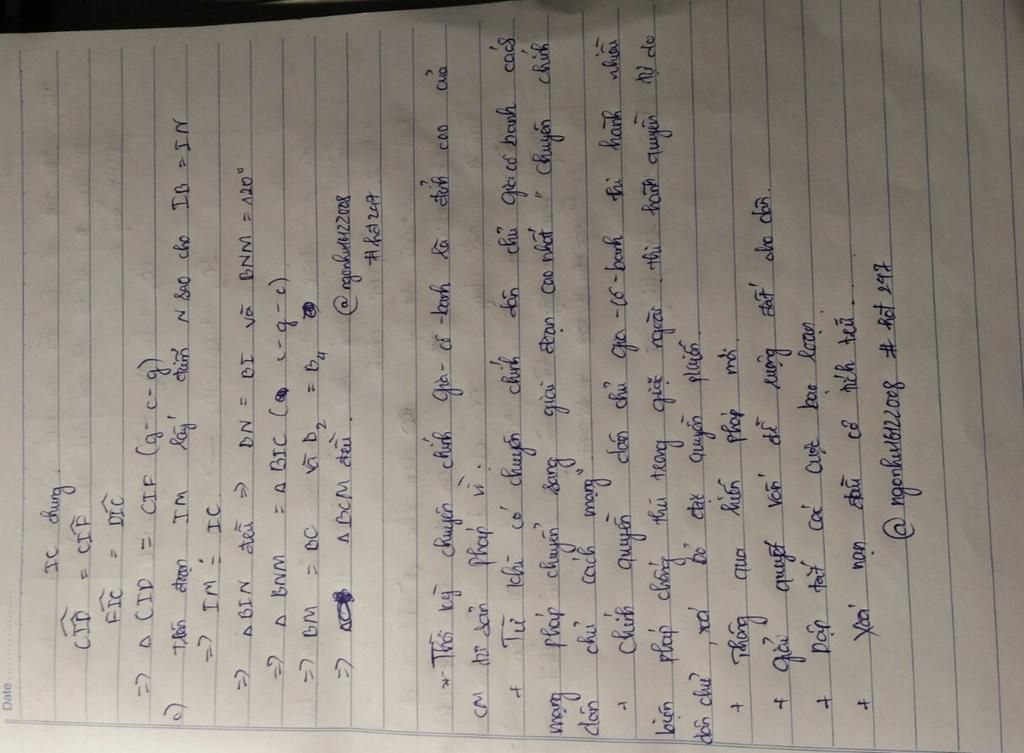 Date
IC chung
CID = CIF
FIC = DIC
=> Δ CID = CIF (g-c-g)
c) Trên đoạn IM lấy điểm N sao cho IB = IN
=> IM = IC
=> Δ BIN đều => BN = BI và BNM = 120°
=> Δ BNM = Δ BIC (c-g-c)
=> BM = BC và B2 = B4
=> Δ BCM đều.
@ngonhu16122008
#hot247
*- Thời kỳ chuyên chính gia-cô-banh là đỉnh cao của
CM tư sản pháp vì:
+ Từ khi có chuyên chính dân chủ gia cô banh cách
mạng pháp chuyển sang giai đoạn cao nhất "chuyên chính
dân chủ cách mạng"
+ Chính quyền dân chủ gia-cô-banh thi hành nhiều
biện pháp chống thù trong giặc ngoài. thi hành quyền tự do
dân chủ, xoá bỏ đặc quyền phong kiến.
+ Thông qua hiến pháp mới.
+ giải quyết vấn đề ruộng đất cho dân.
+ Dập tắt các cuộc bạo loạn
+ Xoá nạn đầu cơ tích trữ...
@ngonhu16122008 #hot247